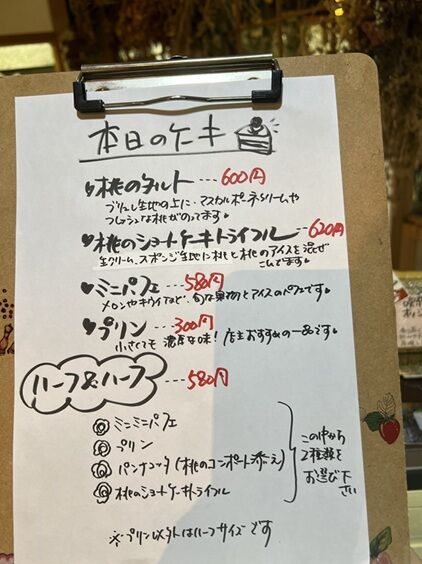 本日のケーキ
桃のタルト ---600円
ブリュレ生地の上に、マスカルポーネクリームや
フレッシュな桃がのってます
桃のショートケーキトライフル --620円
生クリーム、スポンジ生地に桃と桃のアイスを混ぜ
こんでます
ミニパフェ ---580円
メロンやキウイなど、旬な果物とアイスのパフェです
プリン ---300円
小さくても濃厚な味！店主おすすめの一品です
ハーフ&ハーフ ---580円
ミニミニパフェ
プリン
パンナコッタ(桃のコンポート添え)
桃のショートケーキトライフル
この中から
2種類を
お選び下
さい
※プリン以外はハーフサイズです